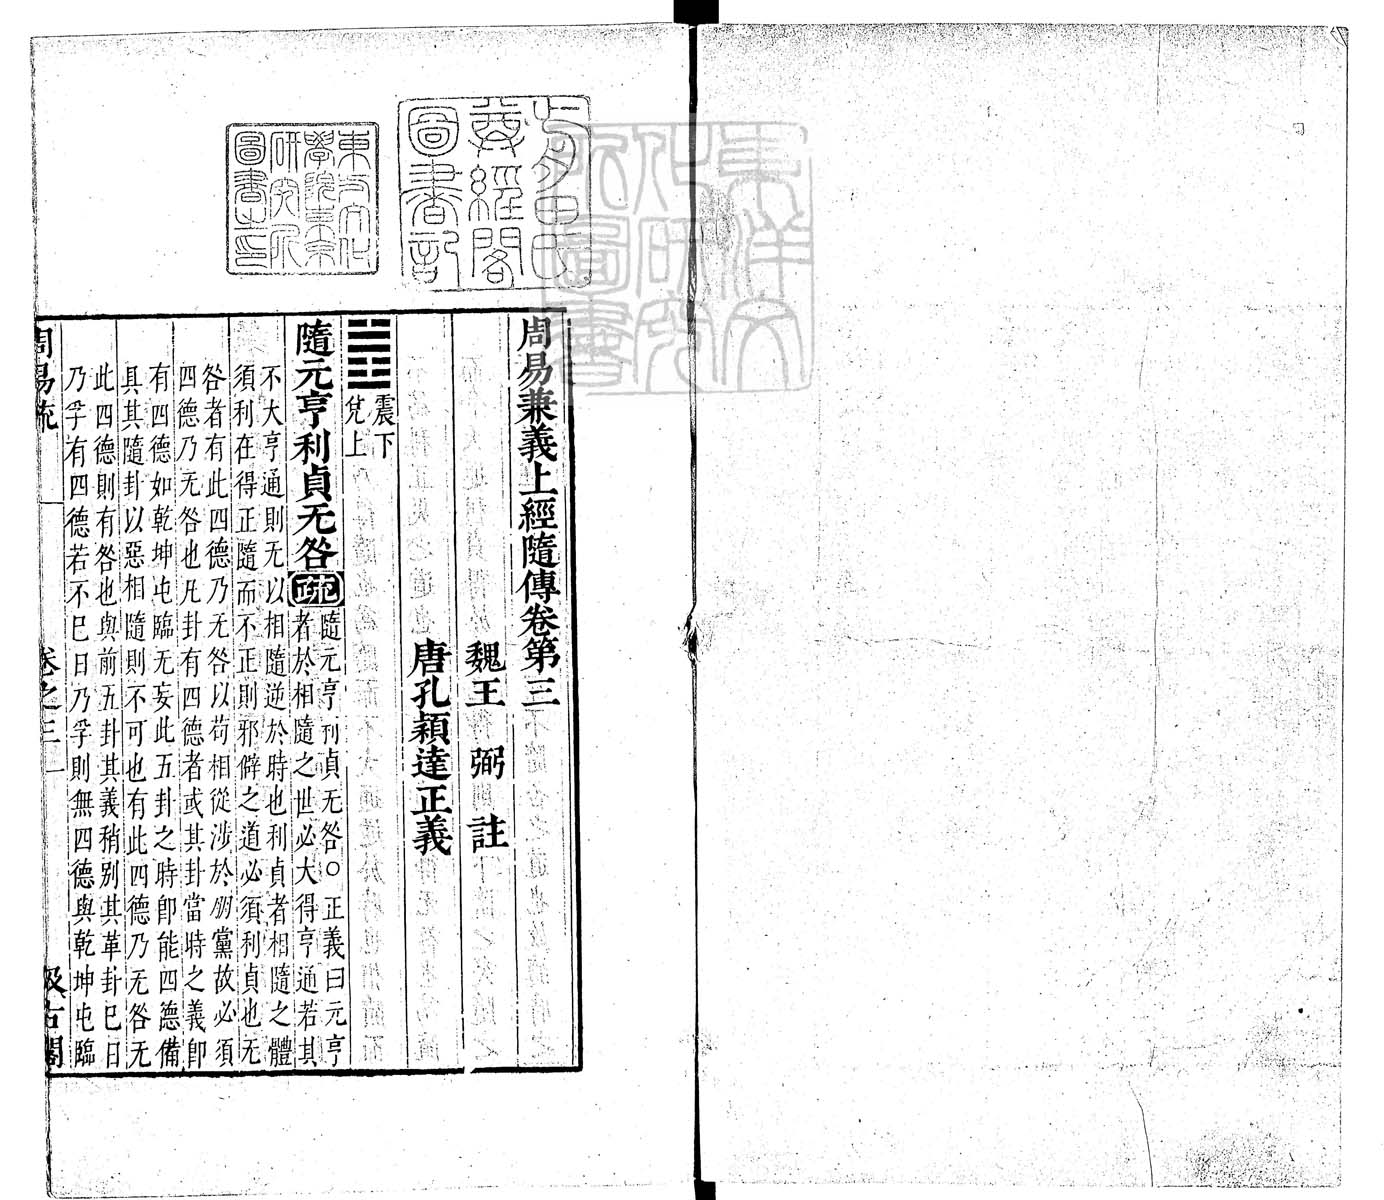 周易兼義上經隨傳卷第三
魏王弼註
唐孔穎達正義
震下
兌上
隨元亨利貞无咎疏隨元亨利貞无咎○正義曰元亨
者於相隨之世必大得亨通若其
不大亨通則无以相隨逆於時也利貞者相隨之體
須利在得正隨而不正則邪僻之道必須利貞也无
咎者有此四德乃无咎以苟相從涉於朋黨故必須
四德乃无咎也凡卦有四德者或其卦當時之義即
有四德如乾坤屯臨无妄此五卦之時即能四德備
具其隨卦以惡相隨則不可也有此四德乃无咎无
此四德則有咎也與前五卦其義稍別其革卦巳日
乃孚有四德若不巳日乃孚則無四德與乾坤屯臨
周易疏 卷之三 一 汲古閣
上毛甲氏
尊經閣
圖書記
東方文化
學院京都
研究所
圖書之印
東洋文
化研究
所圖書